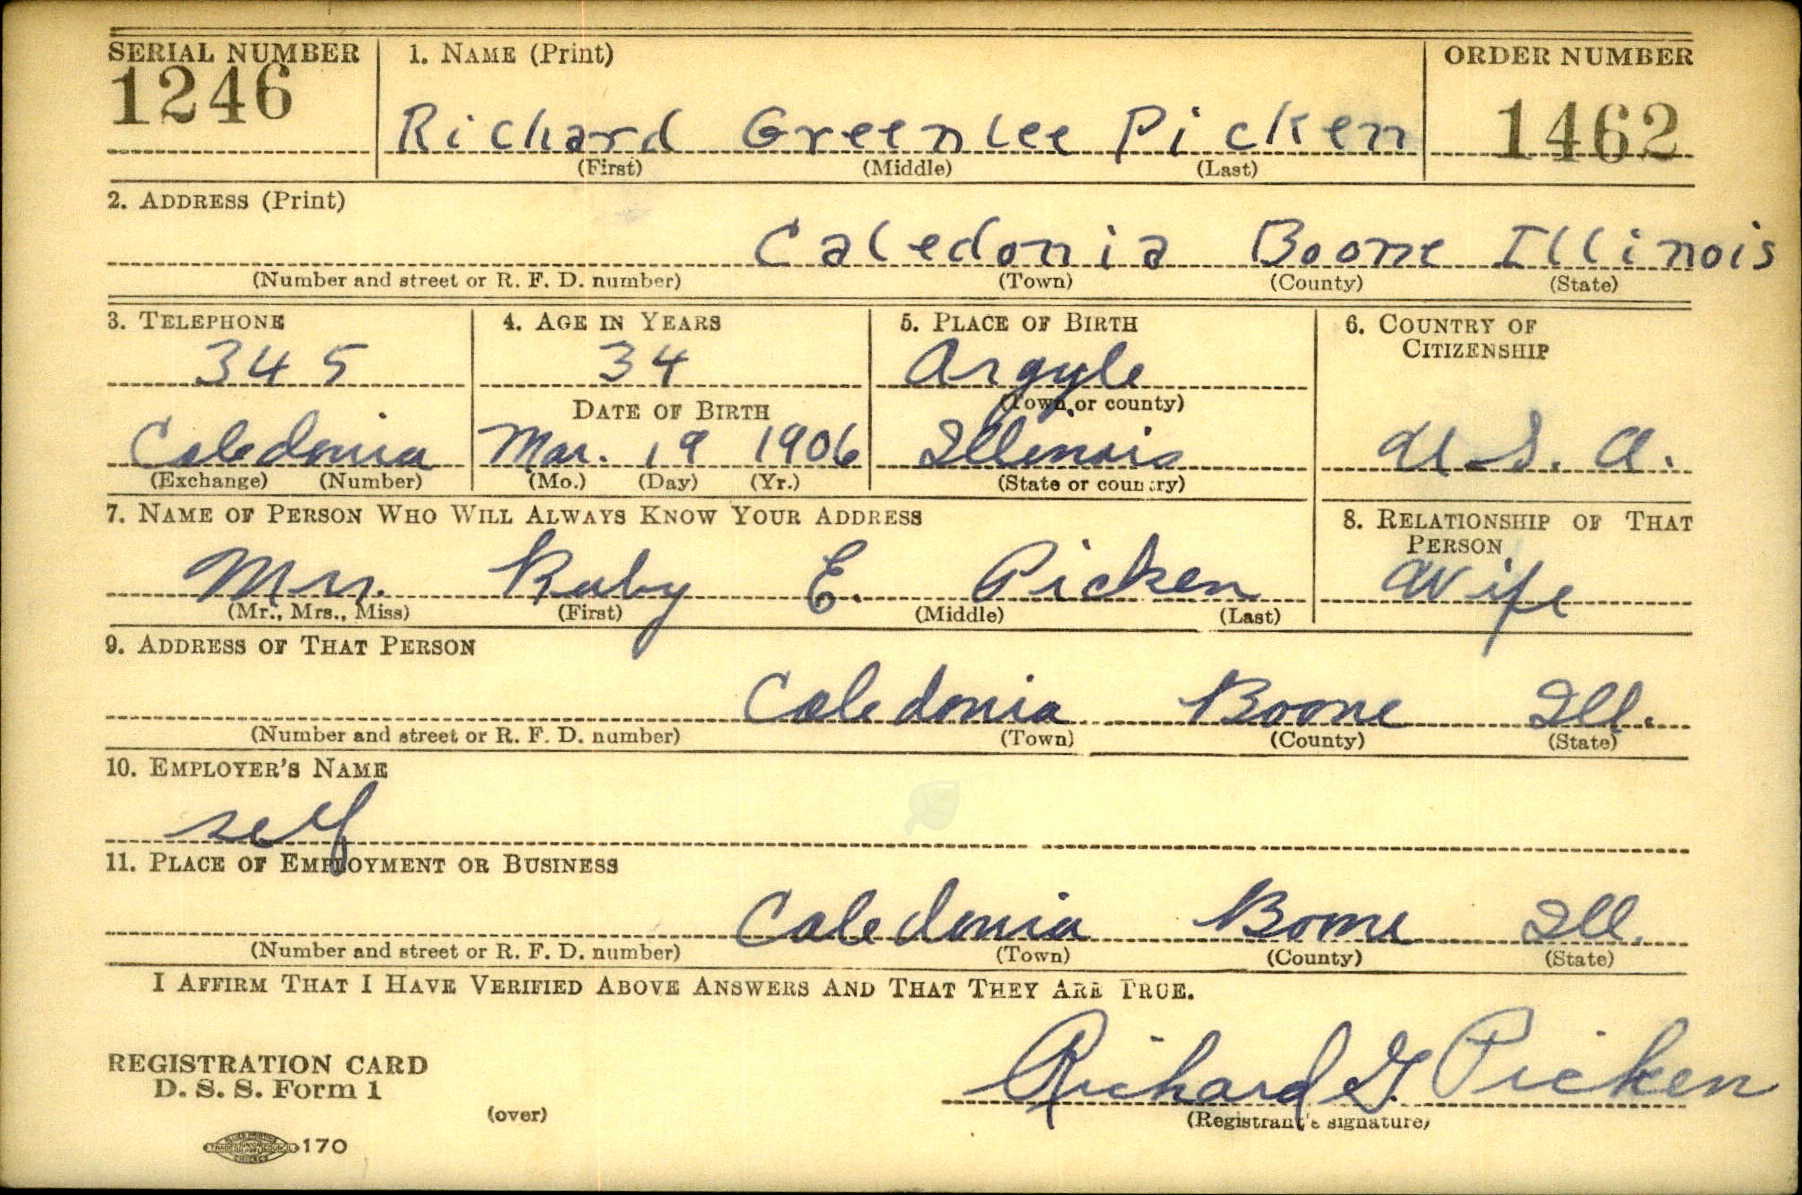 SERIAL NUMBER 1. NAME (Print) ORDER NUMBER
1246 Richard Greenlee Picken 1462
(First) (Middle) (Last)
2. ADDRESS (Print)
Caledonia Boone Illinois
(Number and street or R. F. D. number) (Town) (County) (State)
3. TELEPHONE 4. AGE IN YEARS 5. PLACE OF BIRTH 6. COUNTRY OF CITIZENSHIP
345 34 Argyle
DATE OF BIRTH (Town or county)
Caledonia Mar. 19 1906 Illinois U.S.A.
(Exchange) (Number) (Mo.) (Day) (Yr.) (State or country)
7. NAME OF PERSON WHO WILL ALWAYS KNOW YOUR ADDRESS 8. RELATIONSHIP OF THAT PERSON
Mrs. Ruby E. Picken Wife
(Mr., Mrs., Miss) (First) (Middle) (Last)
9. ADDRESS OF THAT PERSON
Caledonia Boone Ill.
(Number and street or R. F. D. number) (Town) (County) (State)
10. EMPLOYER'S NAME
self
11. PLACE OF EMPLOYMENT OR BUSINESS
Caledonia Boone Ill.
(Number and street or R. F. D. number) (Town) (County) (State)
I AFFIRM THAT I HAVE VERIFIED ABOVE ANSWERS AND THAT THEY ARE TRUE.
Richard G. Picken
REGISTRATION CARD
D. S. S. Form 1
(over) (Registrant's signature)
170